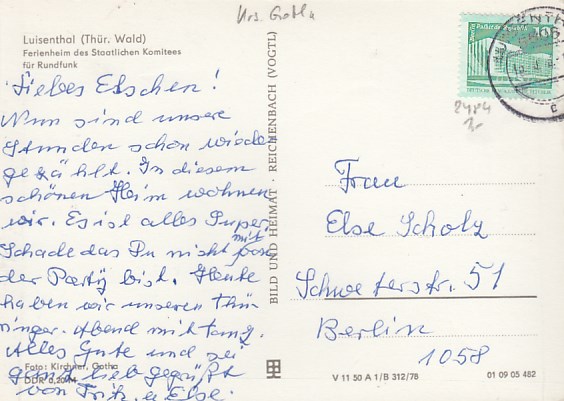 Krs. Gotha
Luisenthal (Thür. Wald)
Ferienheim des Staatlichen Komitees
für Rundfunk
Liebes Elschen!
Nun sind unsere
Stunden schon wieder
gezählt. In diesem
schönen Heim wohnen
wir. Es ist alles Super
Schade das Du nicht mit
der Party bist. Heute
haben wir unseren Thü-
ringer Abend mit Tanz.
Alles Gute und sei
Foto: Kirchner, Gotha
ganz lieb gegrüßt
DDR 0,20 M
von Fritz u Else.
BILD UND HEIMAT · REICHENBACH (VOGTL)
10
2484
Frau
Else Scholz
Schwedterstr. 51
Berlin
1058
V 11 50 A 1/B 312/78
01 09 05 482